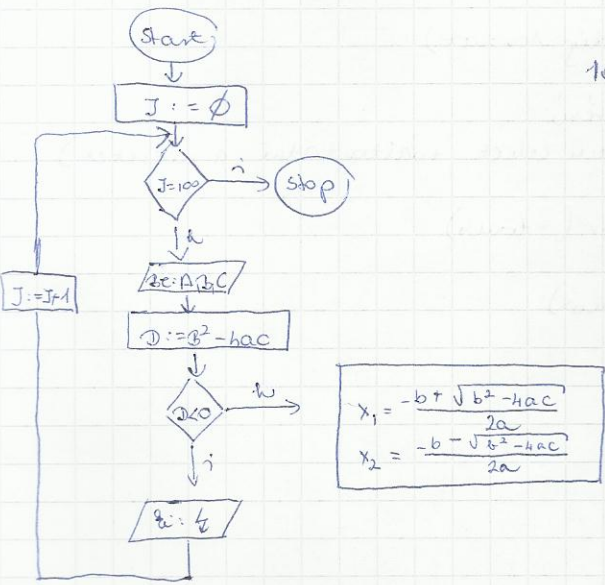 Start
J := Ø
J=100
i
Stop
h
Be: A,B,C
J:=J+1
D := B² - 4ac
D<0
h
i
x₁ = -b + √b² - 4ac / 2a
x₂ = -b - √b² - 4ac / 2a